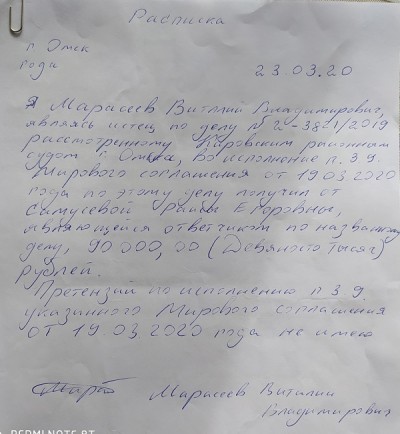 Расписка
г Омск
года
23.03.20
Я Марасеев Виталий Владимирович,
являясь истец по делу № 2-3821/2019
рассмотренному Кировским районным
судом г. Омска, во исполнение п. 3 9.
Мирового соглашения от 19 03 2020
года по этому делу получил от
Самусевой Раисы Егоровны,
являющейся ответчиком по названному
делу, 90 000,00 (Девяносто тысяч)
рублей.
Претензий по исполнению п 3 9
указанного Мирового соглашения
от 19 03 2020 года не имею
Марасеев Виталий
Владимирович
REDMI NOTE 8T